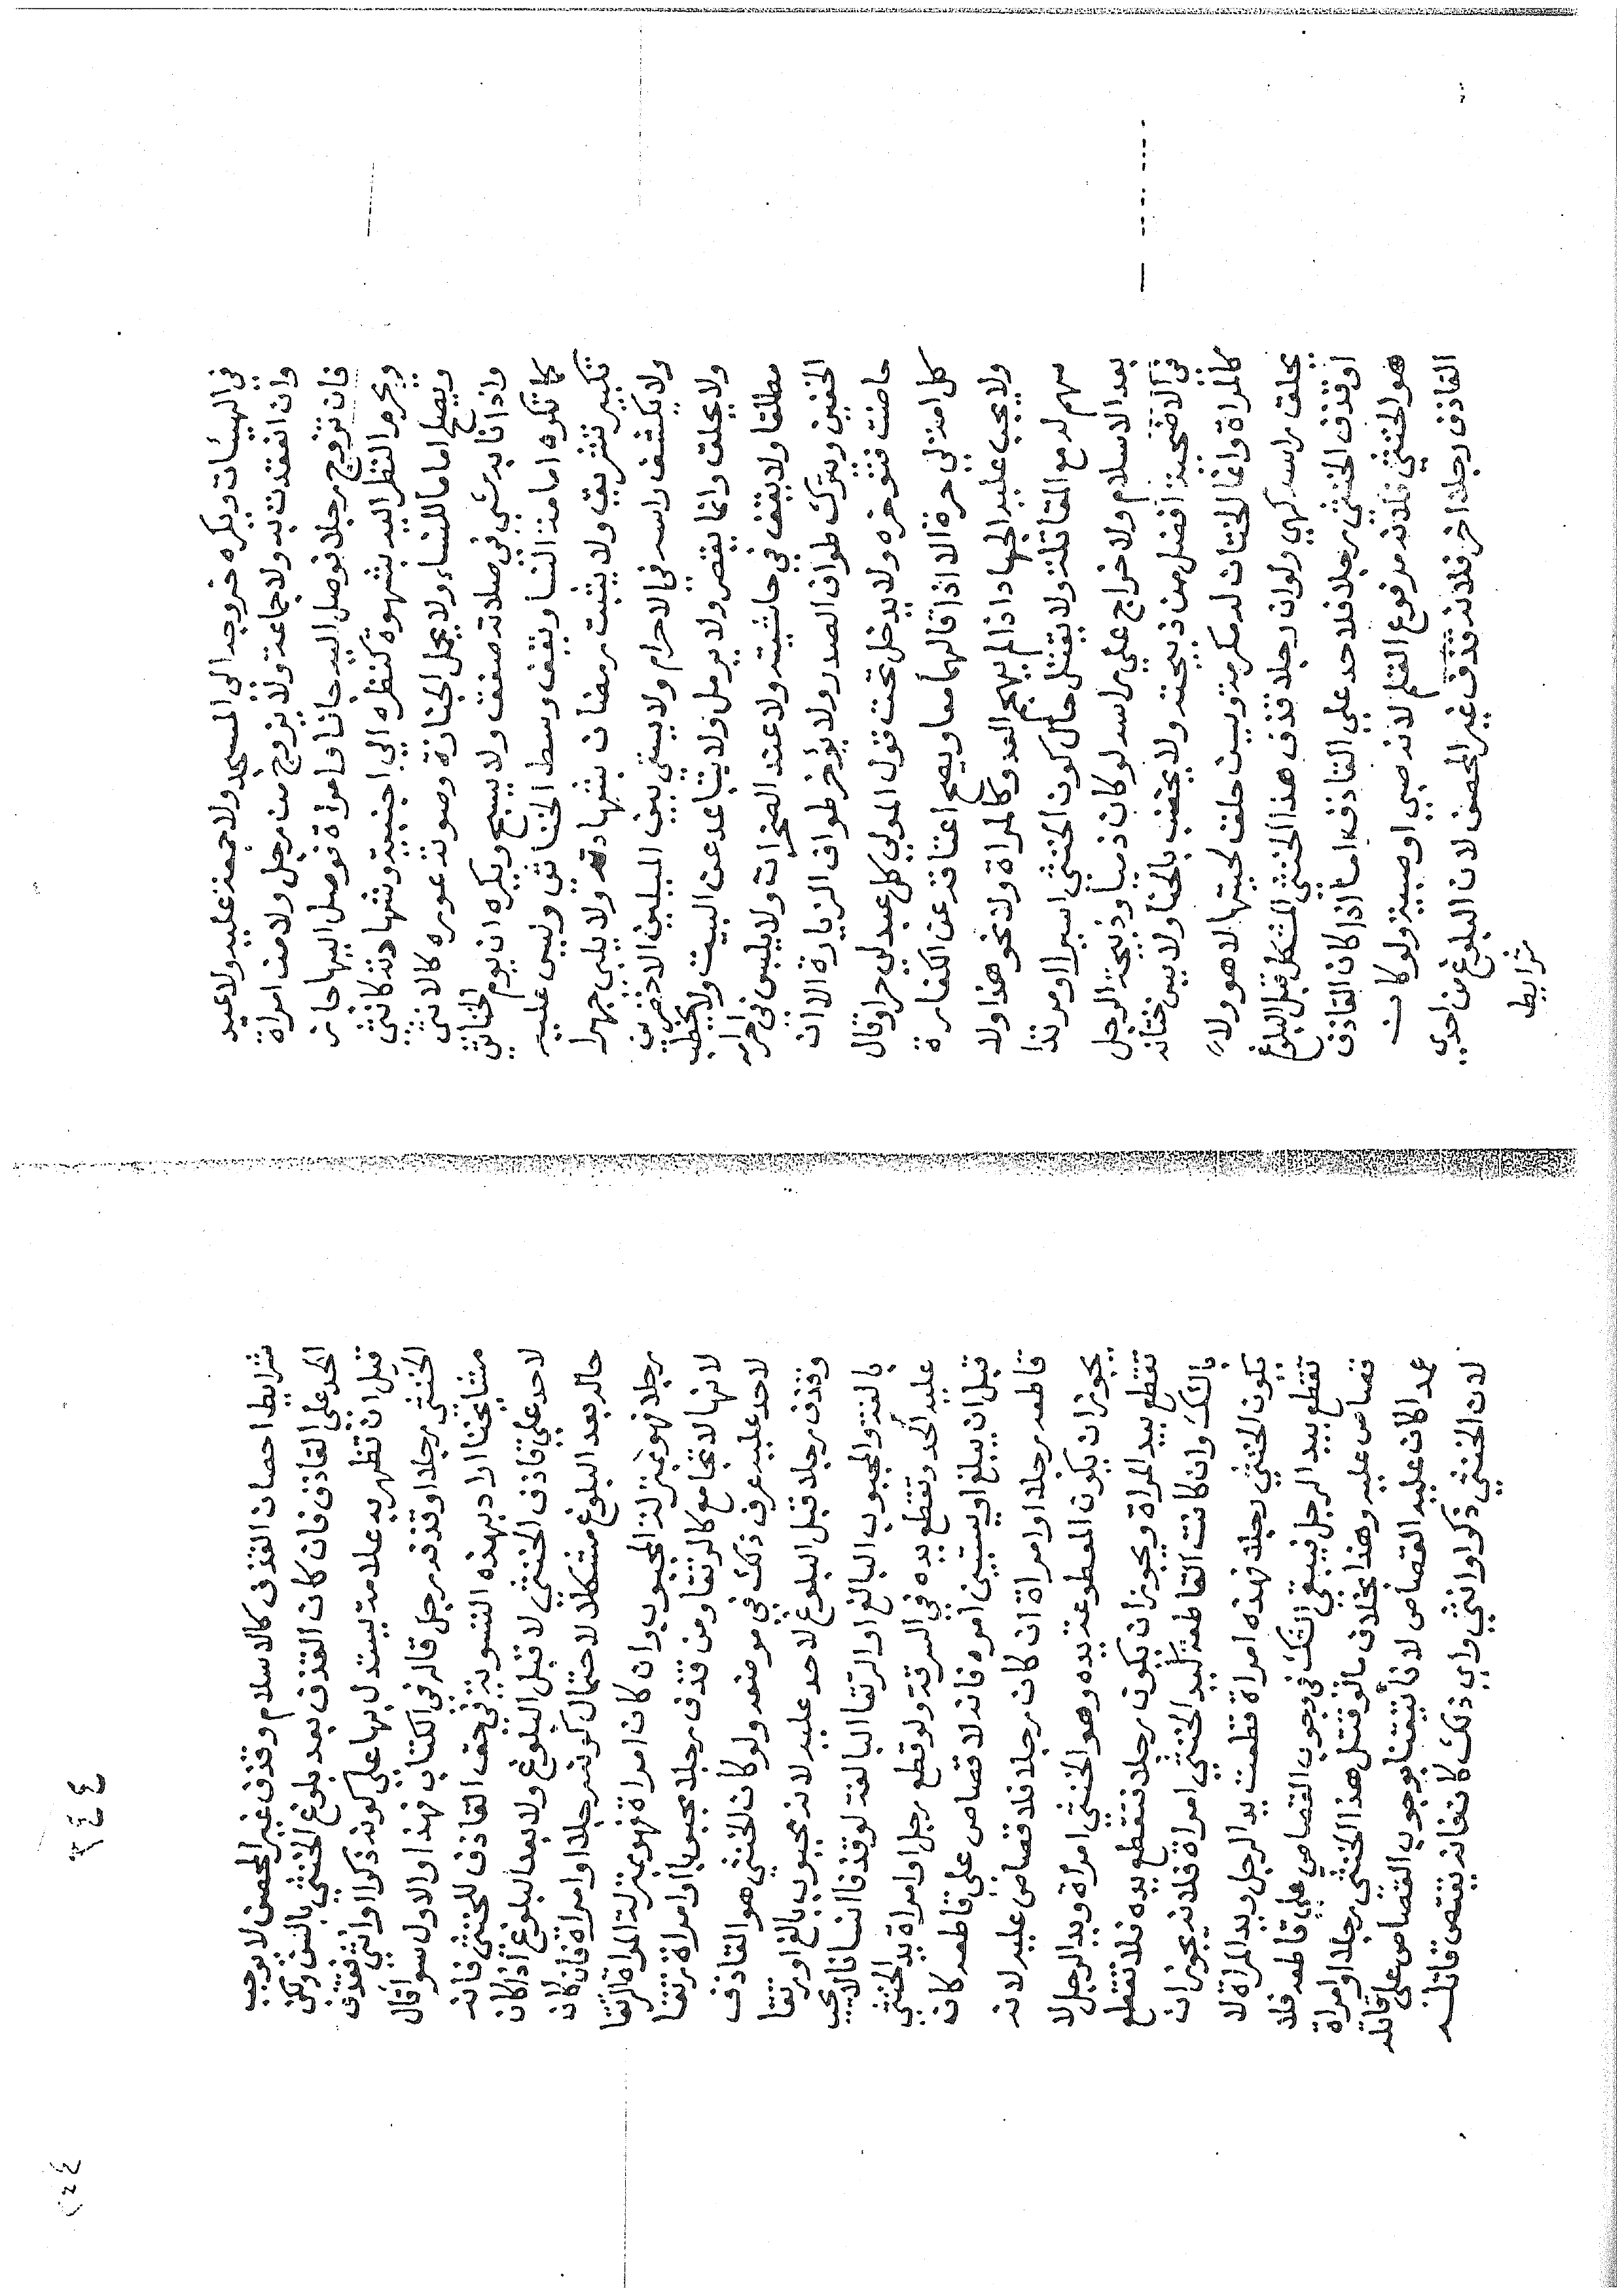 في الهيئات ويكره خروجه الى المسجد ولا جمعة عليه ولا عيد
وان انعقدت به ولا جماعة ولا يزوج من رجل ولا من امراة
فان تزوج رجلا فوصل اليه جاز او امراة فوصل اليها جاز
ويحرم النظر اليه بشهوة كنظره الى اجنبية وشهادته كانثى
ويصلح اماما للنساء ولا يحمل الجنازة وصوته عوره كالانثى
واذا نابه شي في صلاته صفق ولا يسبح ويكره ان يوم الخناثي
كما تكره امامة النسا ويقف وسط الخناثي وليس عليه
تكبير تشريق ولا يثبت رمضان بشهادته ولا يلبي جهرا
ولا يكشف راسه في الاحرام ولا يسعى بين الميلين الاخضرين
ولا يحلق وانما يقصر ولا يرمل ولا يتباعد عن البيت ولا يخطب
مطلقا ولا يقف في حاشيته ولا عند الصخرات ولا يلبس في احرامه
الخفين ويترك طواف الصدر ولا يوخر طواف الزيارة الا ان
حاضت فتوخره ولا يدخل تحت قول المولي كل عبد لي حر او قال
كل امة لي حرة الا اذا قالهما معا ويصح اعتاقه عن الكفارة
ولا يجب عليه الجهاد اذا لم يهجم العدو كالمراة ولا نحو هذا ولا
سهم له مع المقاتلة ولا يقتل حال كون الخنثى اسيرا او مرتدا
بعد الاسلام ولا خراج علي راسه لو كان ذميا وذبيحة الرجل
في الاضحية افضل من ذبيحته ولا يخضب بالحنا ولا يسن ختانه
كالمراة وانما الختان له مكرمة ويسن حلق لحيتها لا هو ولا
يحلق راسه كهي ولو ان رجلا قذف هذا الخنثى المشكل قبل البلوغ
او قذف الخنثى رجلا فلا حد علي القاذف اما اذا كان القاذف
هو الخنثى فلانه مرفوع القلم لانه صبي او صبية ولو كان
القاذف رجلا اخر فلانه قذف غير المحصن لان البلوغ من احدي
شرايط
٢٤٤
شرايط احصان القذف كالاسلام وقذف غير المحصن لا يوجب
الحد علي القاذف فان كان القذف بعد بلوغ الخنثى بالسن ولكن
قبل ان تظهر به علامة يستدل بها علي كونه ذكرا او انثى فقذف
الخنثى رجلا او قذفه رجل قال في الكتاب فهذا والاول سوا قال
مشايخنا اراد بهذه التسوية في حق القاذف للخنثى فانه
لا حد علي قاذف الخنثى لا قبل البلوغ ولا بعد البلوغ اذا كان
حاله بعد البلوغ مشكلا لاحتمال كونه رجلا او امراة فان كان
رجلا فهو بمنزلة المجبوب وان كان امراة فهو بمنزلة المراة الرتقا
لانها لا تجامع كالرتقا ومن قذف رجلا مجبوبا او امراة رتقا
لا حد عليه عرف ذلك في موضعه ولو كان الخنثى هو القاذف
وقذف رجلا قبل البلوغ لا حد عليه لانه مجبوب بالغ او رتقا
بالغة والمجبوب البالغ او الرتقا البالغة لو قذفا انسانا لا يجب
عليه الحد وتقطع يده في السرقة ولو قطع رجل او امراة يد الخنثى
قبل ان يبلغ او يستبين امره فانه لا قصاص علي قاطعه كان
قاطعه رجلا او امراة ان كان رجلا فلا قصاص عليه لانه
يجوز ان يكون المقطوعة يده وهو الخنثى امراة ويد الرجل لا
تقطع بيد المراة ويجوز ان يكون رجلا فتقطع يده فلا تقطع
بالشك وان كانت القاطعة ليد الخنثى امراة فلانه يجوز ان
يكون الخنثى رجلا فهذه امراة قطعت يد الرجل ويد المراة لا
تقطع بيد الرجل فيبقي الشك في وجوب القصاص علي قاطعه فلا
قصاص عليه وهذا بخلاف ما لو قتل هذا الخنثى رجلا او امراة
عمدا كان عليه القصاص لانا تيقنا بوجوب القصاص على قاتله
لان الخنثى ذكر او انثى واي ذلك كان فانه يقتص قاتله